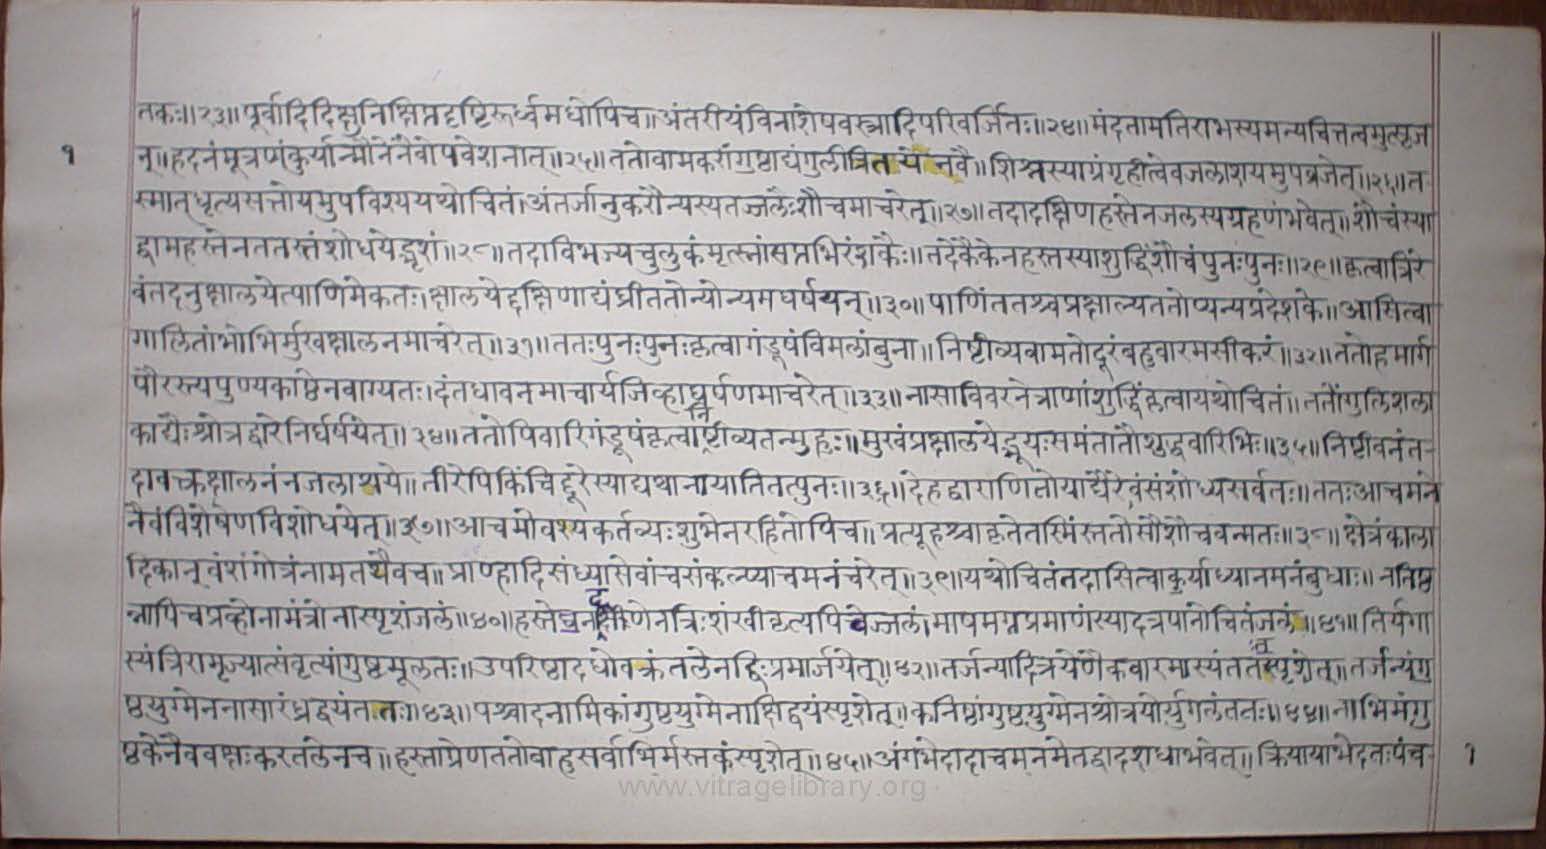 तकः॥२३॥ पूर्वादिदिक्षुनिक्षिप्तदृष्टिरूर्ध्वमधोपिच॥ अंतरीयंविनाशेषवस्त्रादिपरिवर्जितः॥२४॥ मंदतामतिराभस्यमन्यचित्तत्वमुत्सृज
१ न्॥ हदनंमूत्रणंकुर्यान्मौनेनैवोपवेशनात्॥२५॥ ततोवामकरांगुष्ठाद्यंगुलीत्रितयेनवै॥ शिश्नस्याग्रंगृहीत्वैवजलाशयमुपव्रजेत्॥२६॥ त
स्मात्धृत्यसत्तोयमुपविश्ययथोचितं। अंतर्जानुकरौन्यस्यतज्जलैःशौचमाचरेत्॥२७॥ तदादक्षिणहस्तेनजलस्यग्रहणंभवेत्॥ शौचंस्या
द्वामहस्तेनततस्तंशोधयेद्भृशं॥२८॥ तदाविभज्यचुलुकंमृत्स्नांसप्तभिरंशकैः॥ तदेकैकेनहस्तस्याशुद्धिंशौचंपुनःपुनः॥२९॥ कृत्वात्रिरे
वंतदनुक्षालयेत्पाणिमेकतः। क्षालयेद्दक्षिणाद्यंघ्रीततोन्योन्यमघर्षयन्॥३०॥ पाणिंततश्चप्रक्षाल्यततोप्यन्यप्रदेशके॥ आसित्वा
गालितांभोभिर्मुखक्षालनमाचरेत्॥३१॥ ततःपुनःपुनःकृत्वागंडूषंविमलांबुना॥ निष्टीव्यवामतोदूरंबहुवारमसीकरं॥३२॥ ततोहमार्ग
पौरस्त्यपुण्यकाष्ठेनवाग्यतः। दंतधावनमाचार्यजिव्हाघर्षणमाचरेत्॥३३॥ नासाविवरनेत्राणांशुद्धिंकृत्वायथोचितं॥ ततोंगुलिशला
काद्यैःश्रोत्रद्वारेनिर्घर्षयेत्॥३४॥ ततोपिवारिगंडूषंकृत्वाष्टीव्यतन्मुहुः॥ मुखंप्रक्षालयेद्भूयःसमंतातौशुद्धवारिभिः॥३५॥ निष्टीवनंत-
दावक्त्रक्षालनंनजलाशये॥ तीरेपिकिंचिद्दूरेस्याद्यथानायातितत्पुनः॥३६॥ देहद्वाराणितोयाद्यैरेवंसंशोध्यसर्वतः॥ ततःआचमने
नैवंविशेषेणविशोधयेत्॥३७॥ आचमोवश्यकर्तव्यःशुभेनरहितोपिच॥ प्रत्यूहश्चाकृतेतस्मिंस्ततोसौशौचवन्मतः॥३८॥ क्षेत्रंकाला
दिकान्वंशंगोत्रंनामतथैवच॥ प्राण्हादिसंध्यासेवांचसंकल्प्याचमनंचरेत्॥३९॥ यथोचितंतदासित्वाकुर्याध्यानमनंबुधाः॥ नतिष्ठ
न्नापिचप्रव्होनामंत्रोनास्पृशंजलं॥४०॥ हस्तेदक्षिणेनत्रिःशंखीकृत्यपिबेज्जलं। माषमग्नप्रमाणंस्यादत्रपानोचितंजलं॥४१॥ तिर्यगा
स्यंत्रिरामृज्यात्संवृत्यांगुष्ठमूलतः॥ उपरिष्ठादधोवक्त्रंतलेनद्विःप्रमार्जयेत्॥४२॥ तर्जन्यादित्रयेणैकवारमास्यंततःस्पृशेत्॥ तर्जन्यंगु
ष्ठयुग्मेननासारंध्रद्वयंततः॥४३॥ पश्चादनामिकांगुष्ठयुग्मेनाक्षिद्वयंस्पृशेत्॥ कनिष्ठांगुष्ठयुग्मेनश्रोत्रयोर्युगलंततः॥४४॥ नाभिमंगु
ष्ठकेनैववक्षःकरतलेनच॥ हस्ताग्रेणततोबाहूसर्वाभिर्मस्तकंस्पृशेत्॥४५॥ अंगभेदादाचमनमेतद्वादशधाभवेत्॥ क्रियायाभेदतःपंच- १
www.vitragelibrary.org